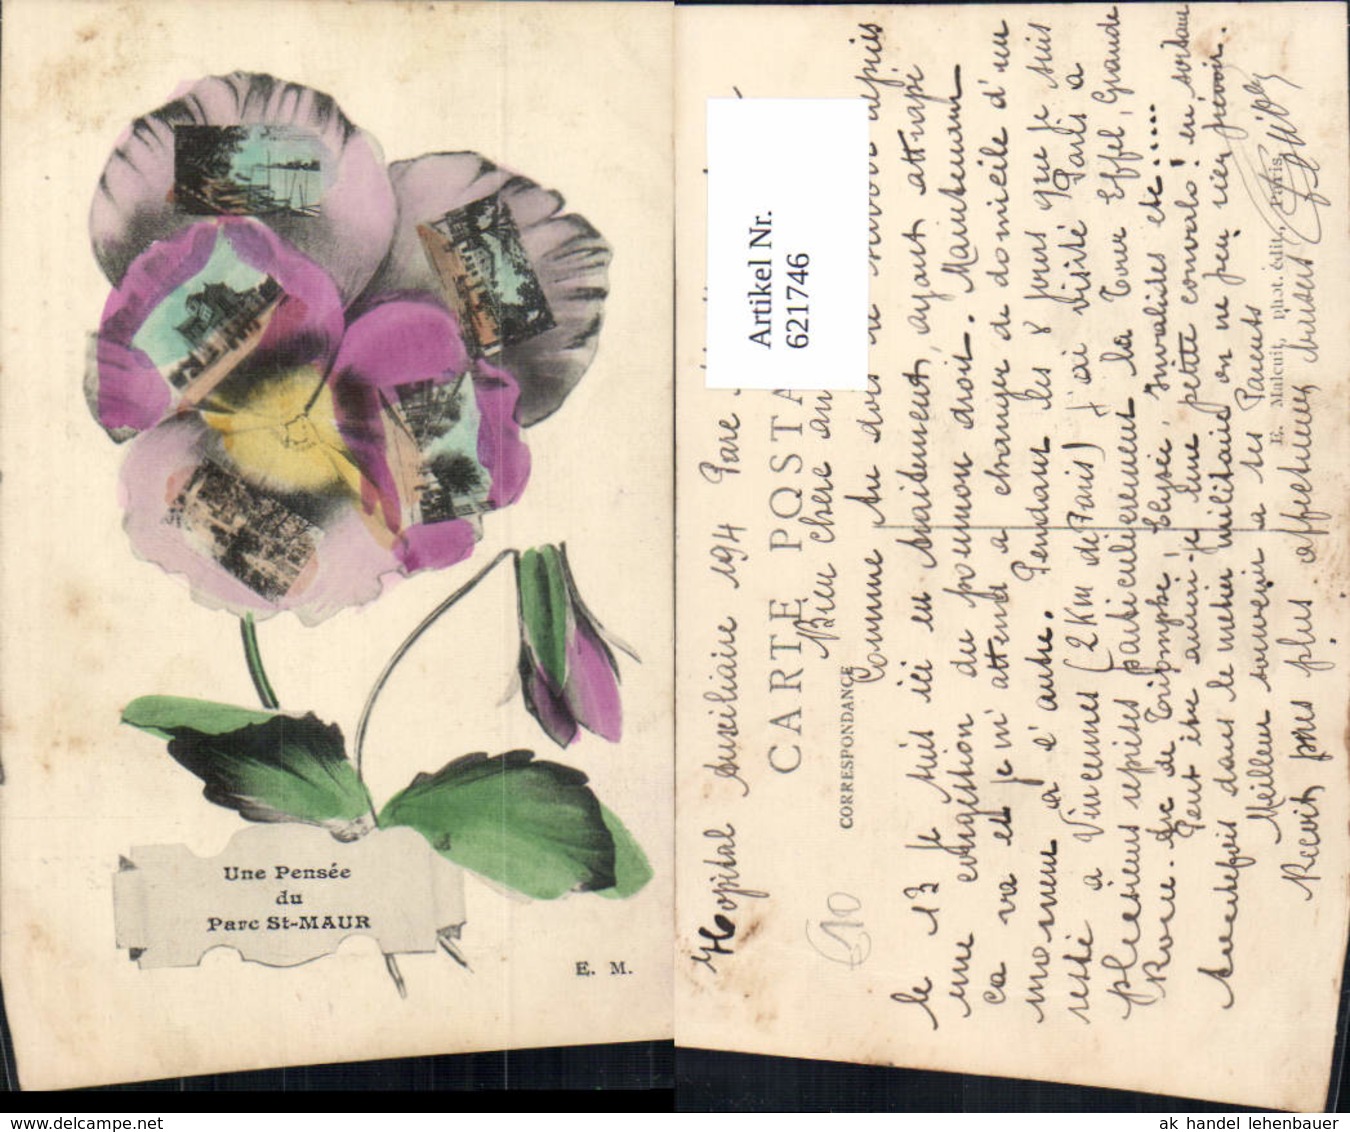 Une Pensée
du
Parc St-MAUR
E. M.
Hopital Auxiliaire 194 Parc
CARTE POSTA
CORRESPONDANCE
Artikel Nr.
621746
Bien chère
Comme tu dois le savoir depuis
le 13 je suis ici en traitement, ayant attrapé
une congestion du poumon droit. Maintenant
ca va et je m'attends a changer de domicile d'un
moment a l'autre. Pendant les 8 jours que je suis
resté a Vincennes (2 Km de Paris) j'ai visité Paris a
plusieurs reprises particulierement la Tour Effel, Grande
Roue. Arc de Triomphe, Elysée, Invalides etc.....
Peut être aurai-je une petite convals! en sortant
Toutefois dans le metier militaire on ne peu rien prévoir.
Meilleur souvenir a tes Parents
Recoit mes plus affectueux baisers
E. Malcuit, phot. édit., Paris
510
ak handel lehenbauer